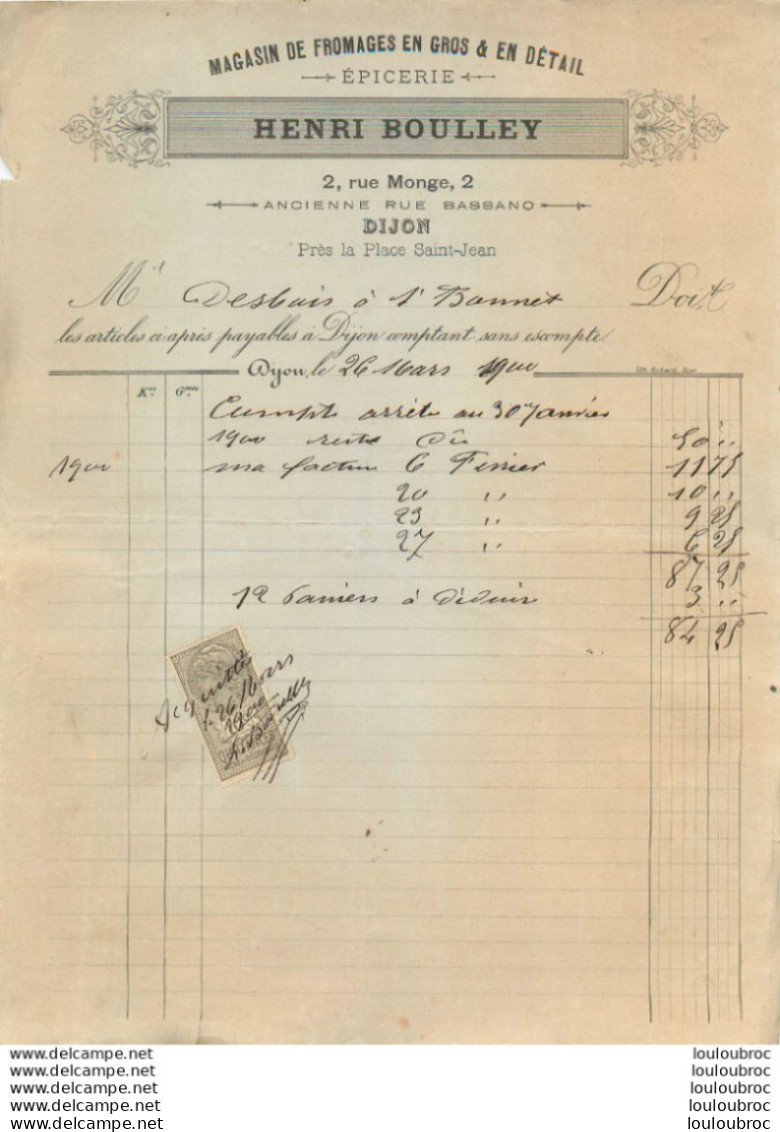 MAGASIN DE FROMAGES EN GROS & EN DÉTAIL
ÉPICERIE
HENRI BOULLEY
2, rue Monge, 2
ANCIENNE RUE BASSANO
DIJON
Près la Place Saint-Jean
Mr Desbois à St Bonnet Doit
les articles ci après payables à Dijon comptant sans escompte.
Dijon, le 26 Mars 1900
Kos Gmes
Compte arrêté au 30 Janvier
1900 reste Dû 50 "
1900 ma facture 6 Février 11 75
20 " 10 "
23 " 9 25
27 " 6 25
87 25
12 Paniers à déduire 3 "
84 25
Acquitté
le 26 Mars
1900
H. Boulley
www.delcampe.net louloubroc
www.delcampe.net louloubroc
www.delcampe.net louloubroc
www.delcampe.net louloubroc
www.delcampe.net louloubroc